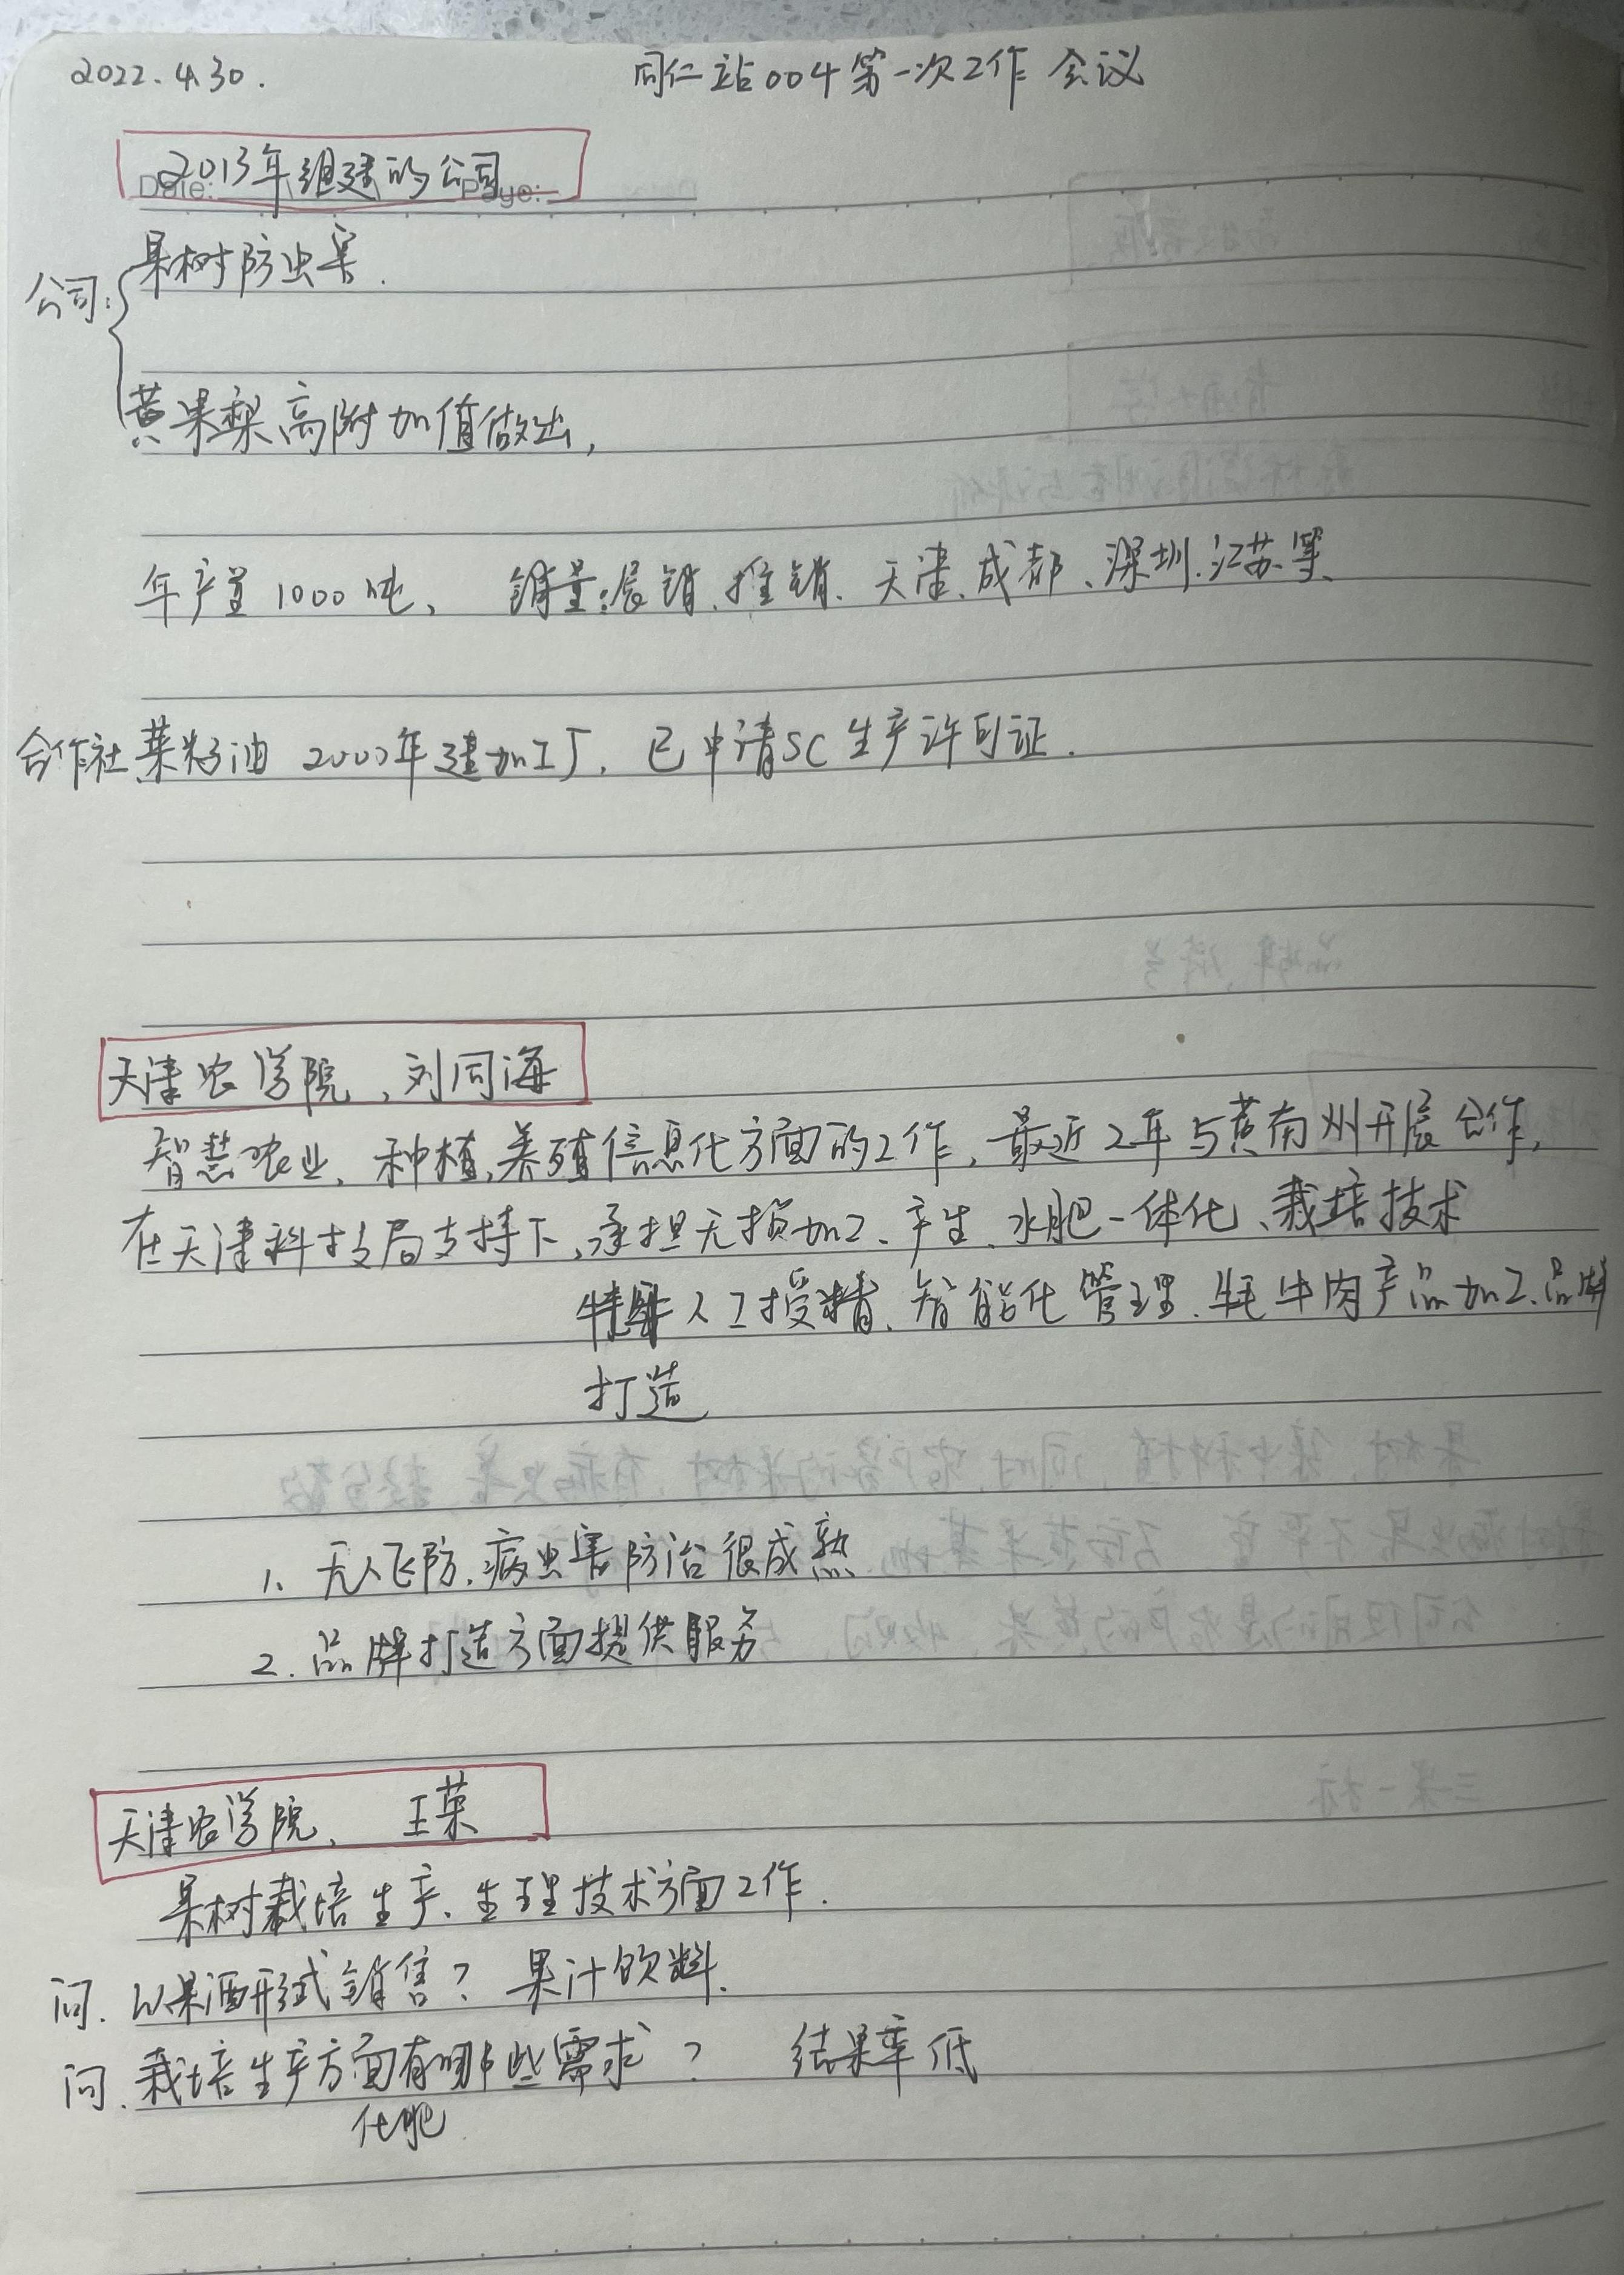 2022.4.30.
同仁站004第一次工作会议
2013年组建的公司
Date:
Page:
果树防虫害.
公司:
黄果梨高附加值做出,
年产量1000吨、 销量:展销、推销、天津、成都、深圳、江苏等、
合作社 菜籽油 2000年建加工厂, 已申请SC生产许可证.
天津农学院,刘同海
智慧农业、种植、养殖信息化方面的工作,最近2年与黄南州开展合作,
在天津科技局支持下,承担无损加工、产生、水肥一体化、栽培技术
人工授精、智能化管理、牦牛肉产品加工、品牌
打造
1、无人飞防,病虫害防治很成熟
2.品牌打造方面提供服务
天津农学院、 王荣
果树栽培生产、生理技术方面工作.
问.以果酒形式销售? 果汁饮料.
问.栽培生产方面有哪些需求? 结果率低
化肥